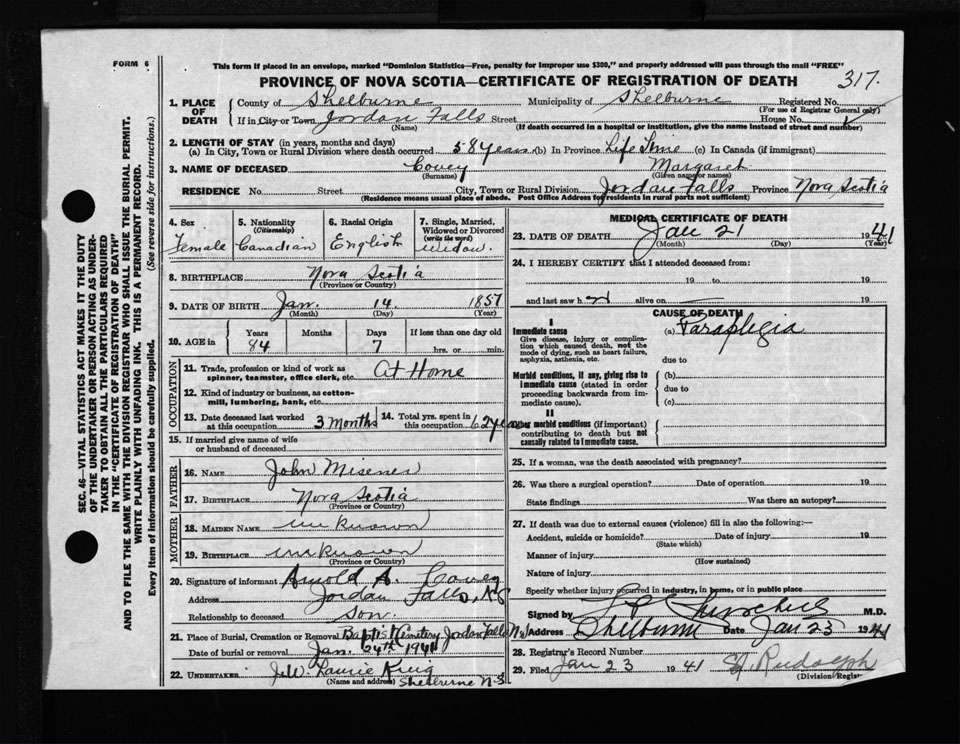 FORM 6
This form if placed in an envelope, marked "Dominion Statistics—Free, penalty for improper use $300," and properly addressed will pass through the mail "FREE"
PROVINCE OF NOVA SCOTIA—CERTIFICATE OF REGISTRATION OF DEATH
317.
1. PLACE OF DEATH
County of Shelburne Municipality of Shelburne Registered No.
(For use of Registrar General only)
If in City or Town Jordan Falls Street House No.
(Name) (If death occurred in a hospital or institution, give the name instead of street and number)
2. LENGTH OF STAY (in years, months and days)
(a) In City, Town or Rural Division where death occurred 58 years (b) In Province Life Time (c) In Canada (if immigrant)
3. NAME OF DECEASED Covey Margaret
(Surname) (Given name or names)
RESIDENCE No. Street City, Town or Rural Division Jordan Falls Province Nova Scotia
(Residence means usual place of abode. Post Office Address for residents in rural parts not sufficient)
4. Sex Female
5. Nationality (Citizenship) Canadian
6. Racial Origin English
7. Single, Married, Widowed or Divorced (write the word) widow.
8. BIRTHPLACE Nova Scotia
(Province or Country)
9. DATE OF BIRTH Jan. 14. 1857
(Month) (Day) (Year)
10. AGE in Years 84 Months Days 7 If less than one day old hrs. or min.
OCCUPATION
11. Trade, profession or kind of work as spinner, teamster, office clerk, etc. At Home
12. Kind of industry or business, as cotton-mill, lumbering, bank, etc.
13. Date deceased last worked at this occupation 3 months
14. Total yrs. spent in this occupation 62 years
15. If married give name of wife or husband of deceased
FATHER
16. NAME John Misener
17. BIRTHPLACE Nova Scotia
(Province or Country)
MOTHER
18. MAIDEN NAME unknown
19. BIRTHPLACE unknown
(Province or Country)
20. Signature of informant Arnold A. Covey
Address Jordan Falls, N.S
Relationship to deceased Son
21. Place of Burial, Cremation or Removal Baptist Cemetery Jordan Falls N.S
Date of burial or removal Jan. 24th 1941
22. UNDERTAKER
(Name and address) Shelburne N-S.
MEDICAL CERTIFICATE OF DEATH
23. DATE OF DEATH Jan 21 1941
(Month) (Day) (Year)
24. I HEREBY CERTIFY that I attended deceased from:
19 to 19
and last saw h alive on 19
CAUSE OF DEATH
I
Immediate cause
Give disease, injury or complication which caused death, not the mode of dying, such as heart failure, asphyxia, asthenia, etc.
(a) Paraplegia
due to
Morbid conditions, if any, giving rise to immediate cause (stated in order proceeding backwards from immediate cause).
(b)
due to
(c)
II
Other morbid conditions (if important) contributing to death but not causally related to immediate cause.
25. If a woman, was the death associated with pregnancy?
26. Was there a surgical operation? Date of operation 19
State findings Was there an autopsy?
27. If death was due to external causes (violence) fill in also the following:—
Accident, suicide or homicide? Date of injury 19
(State which)
Manner of injury
(How sustained)
Nature of injury
Specify whether injury occurred in industry, in home, or in public place
Signed by M.D.
Address Shelburne Date Jan 23 1941
28. Registrar's Record Number
29. Filed Jan 23 1941 Rudolph
(Division Registr
SEC. 46—VITAL STATISTICS ACT MAKES IT THE DUTY
OF THE UNDERTAKER OR PERSON ACTING AS UNDER-
TAKER TO OBTAIN ALL THE PARTICULARS REQUIRED
IN THE "CERTIFICATE OF REGISTRATION OF DEATH"
AND TO FILE THE SAME WITH THE DIVISION REGISTRAR WHO SHALL ISSUE THE BURIAL PERMIT.
WRITE PLAINLY WITH UNFADING INK. THIS IS A PERMANENT RECORD.
Every item of information should be carefully supplied. (See reverse side for instructions.)